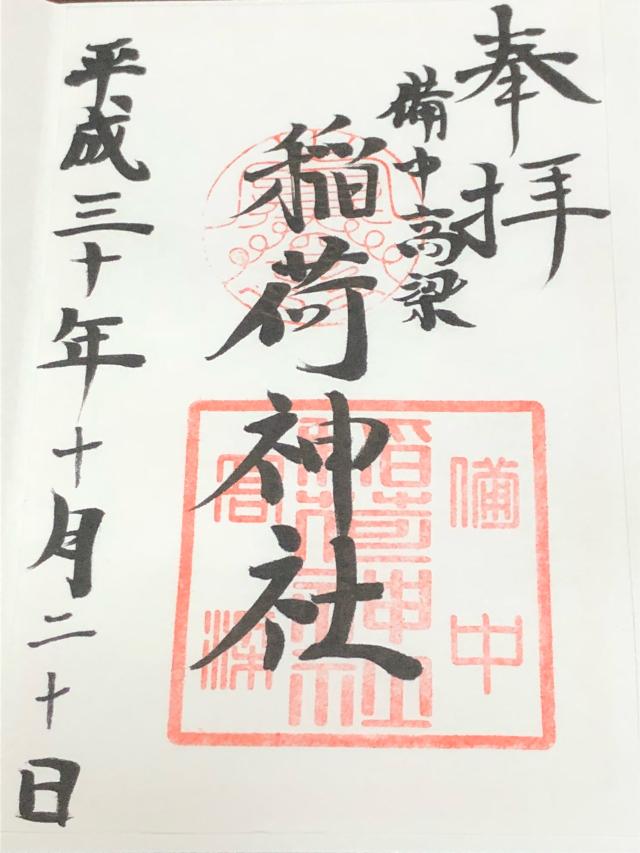 奉拝
備中高梁
稲荷神社
平成三十年十月二十日
備中
稲荷神社
高梁